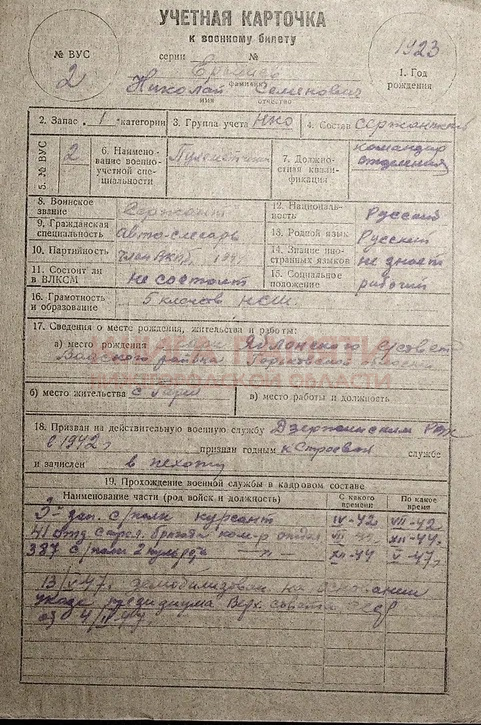 УЧЕТНАЯ КАРТОЧКА
к военному билету
серии №
№ ВУС
2
1923
1. Год рождения
фамилия
Николай Семенович
имя отчество
2. Запас 1 категории 3. Группа учета НКО 4. Состав сержантск
5. № ВУС 2
6. Наименование военно-учетной специальности
7. Должностная квалификация командир отделения
8. Воинское звание Сержант
9. Гражданская специальность авто-слесарь
10. Партийность член ВКПб,
11. Состоит ли в ВЛКСМ не состоит
12. Национальность Русский
13. Родной язык Русский
14. Знание иностранных языков не знает
15. Социальное положение рабочий
16. Грамотность и образование 5 классов НСШ.
17. Сведения о месте рождения, жительства и работы:
а) место рождения Яблонского с/совет
Вадского района Горьковской области
ПАМЯТИ
ОБЛАСТИ
б) место жительства в) место работы и должность
18. Призван на действительную военную службу Дзержинским РВК
с 1942 признан годным к строевой службе
и зачислен в пехоту
19. Прохождение военной службы в кадровом составе
Наименование части (род войск и должность) С какого времени По какое время
зап. с/полк курсант IV-42 VII-42
XII-44.
387 с/полк XII-44 V-47
13/V-47, демобилизован на основании
указа президиума Верх. совета СССР
от